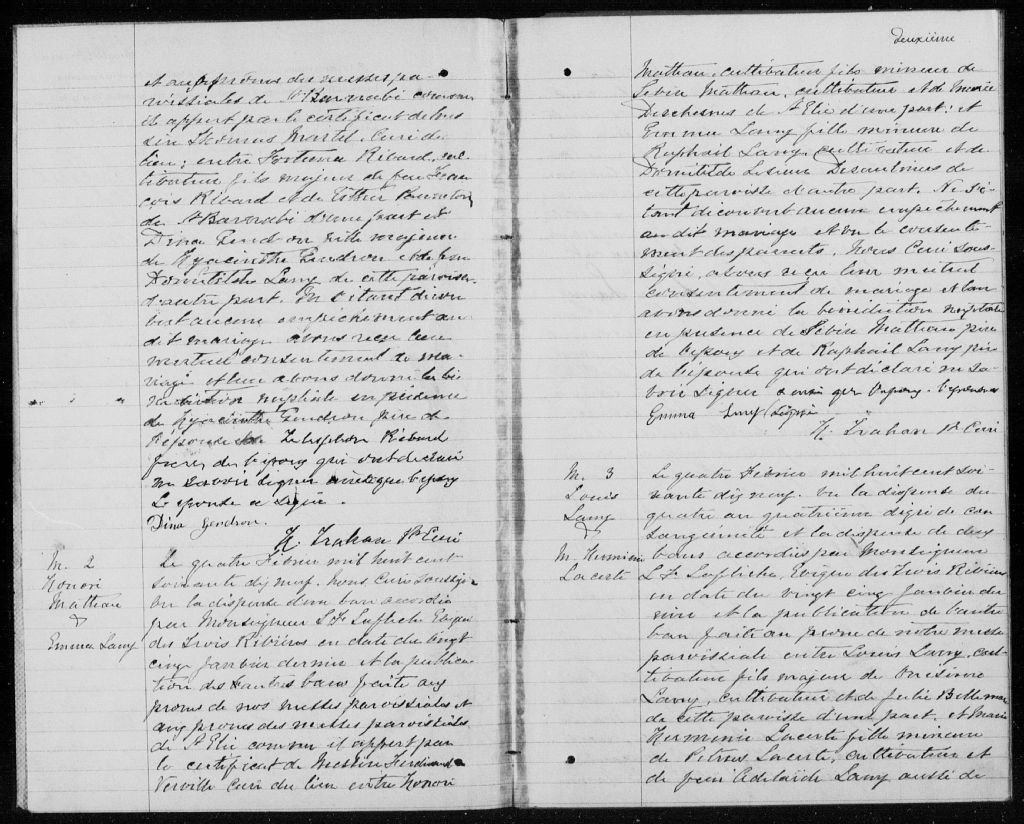 et aux prônes des messes pa-
roissiales de St Barnabé comme
il appert par le certificat de mes
sire Thomas Martel, Curé du
lieu; entre Fortuna Ribard, cul
tivateur fils majeur de feu Fran
çois Ribard et de Esther
de St Barnabé d'une part et
Dina Gendron fille majeure
de Hyacinthe Gendron et de feu
Domitilde Lamy de cette paroisse
d'autre part. Ne s'étant décou
vert aucun empêchement au
dit mariage avons reçu leur
mutuel consentement de ma-
riage et leur avons donné la bé
nédiction nuptiale en présence
de Hyacinthe Gendron père de
l'épouse de Telesphore Ribard
frère de l'époux qui ont déclaré
ne savoir signer ainsi que l'époux
L'épouse a signé.
Dina Gendron.
N. Trahan Ptr Curé
M. 2
Honoré
Mathau
&
Emma Lamy
Le quatre Février mil huit cent
soixante dix neuf. Nous Curé soussigné
vu la dispense d'un ban accordée
par Monseigneur L. F. Lafleche Evêque
des Trois Rivières en date du vingt
cinq Janvier dernier et la publica
tion des deux autres bans faite aux
prônes de nos messes paroissiales et
aux prônes des messes paroissiales
de St Elie comme il appert par
le certificat de Messire Ferdinand
Verville Curé du lieu entre Honoré
deuxième
Mathau, cultivateur fils mineur de
Sévère Mathau, cultivateur et de Marie
Deschesnes de St Elie d'une part; et
Emma Lamy fille mineure de
Raphaël Lamy cultivateur et de
Domitilde Lesieur Desaulniers de
cette paroisse d'autre part. Ne s'é-
tant découvert aucun empêchement
au dit mariage et vu le consente-
ment des parents. Nous Curé sous-
signé, avons reçu leur mutuel
consentement de mariage et leur
avons donné la bénédiction nuptiale
en présence de Sévère Mathau père
de l'époux et de Raphaël Lamy père
de l'épouse qui ont déclaré ne sa-
voir signer ainsi que l'époux. L'épouse a
Emma Lamy signé
N. Trahan Ptr Curé
M. 3
Louis
Lamy
&
M. Herminie
Lacerte
Le quatre Février mil huit cent soi-
xante dix neuf. Vu la dispense du
quatre au quatrième dégré de con
sanguinité et la dispense de deux
bans accordées par Monseigneur
L. F. Lafleche, Evêque des Trois Rivières
en date du vingt cinq Janvier der
nier et la publication de l'autre
ban faite au prône de notre messe
paroissiale entre Louis Lamy, cul-
tivateur fils majeur de Onésime
Lamy, cultivateur et de Julie Bellemare
de cette paroisse d'une part. et Marie
Herminie Lacerte fille mineure
de Petrus Lacerte, cultivateur et
de feue Adelaide Lamy aussi de